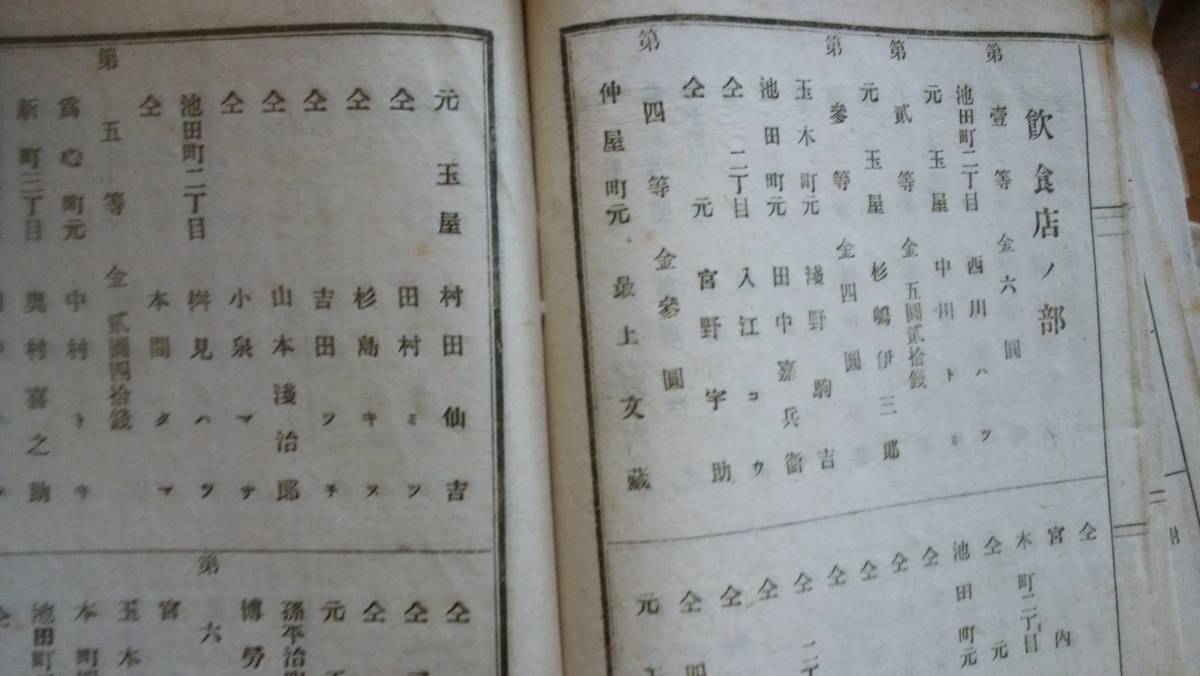 飮食店ノ部
第壹等 金六圓
池田町二丁目 西川ハツ
元玉屋 中川ト
第貳等 金五圓貳拾錢
元玉屋 杉嶋伊三郎
第參等 金四圓
玉木町元 淺野駒吉
池田町元 田中嘉兵衞
仝二丁目 入江コウ
仝元 宮野宇助
第四等 金參圓
仲屋町元 最上文藏
仝
宮内
木町二丁目
仝元
池田町元
仝
仝
仝
仝二丁
仝
仝
仝四
元玉
元玉屋 村田仙吉
仝 田村ミツ
仝 杉島キヌ
仝 吉田ツチ
仝 山本淺治郎
仝 小泉マサ
池田町二丁目 桝見ハツ
仝 本間タマ
第五等 金貳圓四拾錢
爲心町元 中村トキ
新町二丁目 奧村喜之助
仝
仝
仝
元
孫平治
博勞
第六
宮
玉木
本町四
池田町
仝